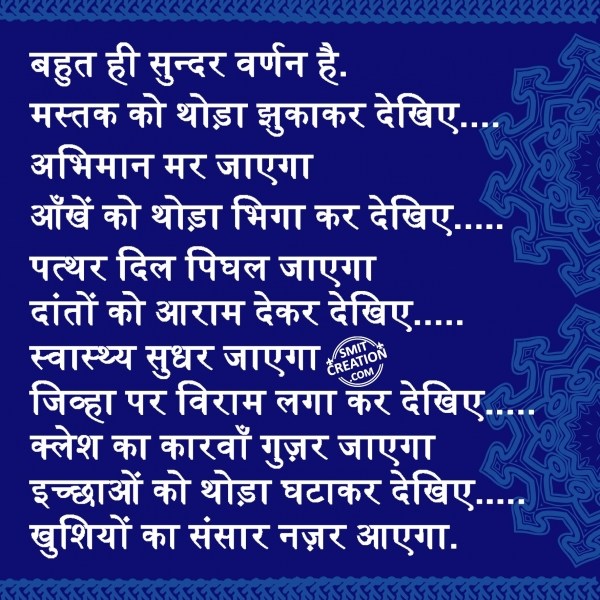 बहुत ही सुन्दर वर्णन है.
मस्तक को थोड़ा झुकाकर देखिए....
अभिमान मर जाएगा
आँखें को थोड़ा भिगा कर देखिए.....
पत्थर दिल पिघल जाएगा
दांतों को आराम देकर देखिए.....
स्वास्थ्य सुधर जाएगा
SMIT
CREATION
.COM
जिव्हा पर विराम लगा कर देखिए.....
क्लेश का कारवाँ गुज़र जाएगा
इच्छाओं को थोड़ा घटाकर देखिए.....
खुशियों का संसार नज़र आएगा.